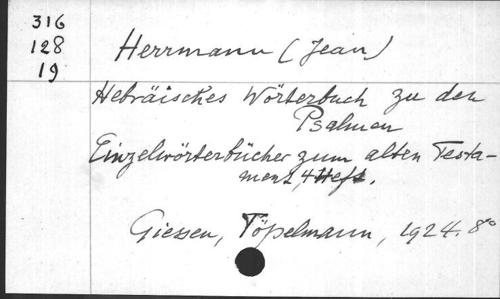 316
128
19
Herrmann (Jean)
Hebräisches Wörterbuch zu den
Psalmen
Einzelwörterbücher zum alten Testa-
ment, 4 Heft.
Giessen, Töpelmann, 1924. 8°